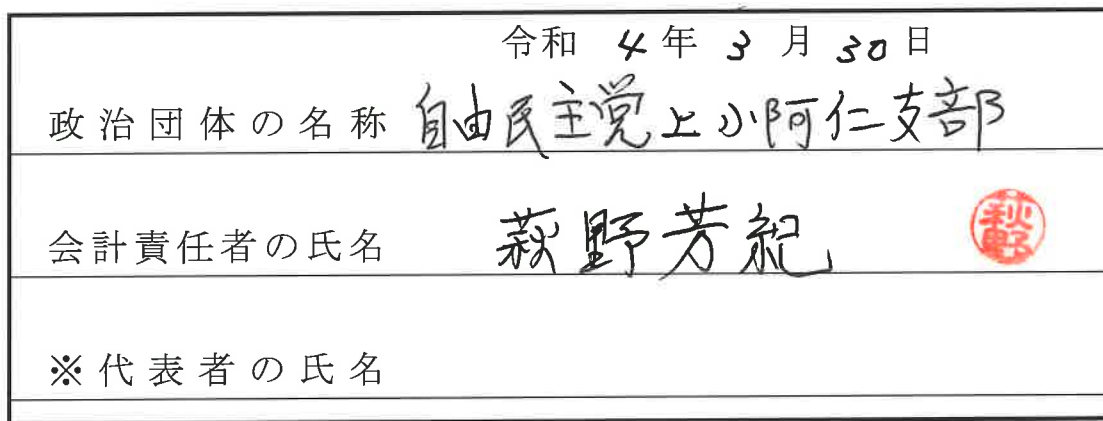 令和 4 年 3 月 30 日
政治団体の名称 自由民主党上小阿仁支部
会計責任者の氏名 萩野芳紀 萩野
※代表者の氏名